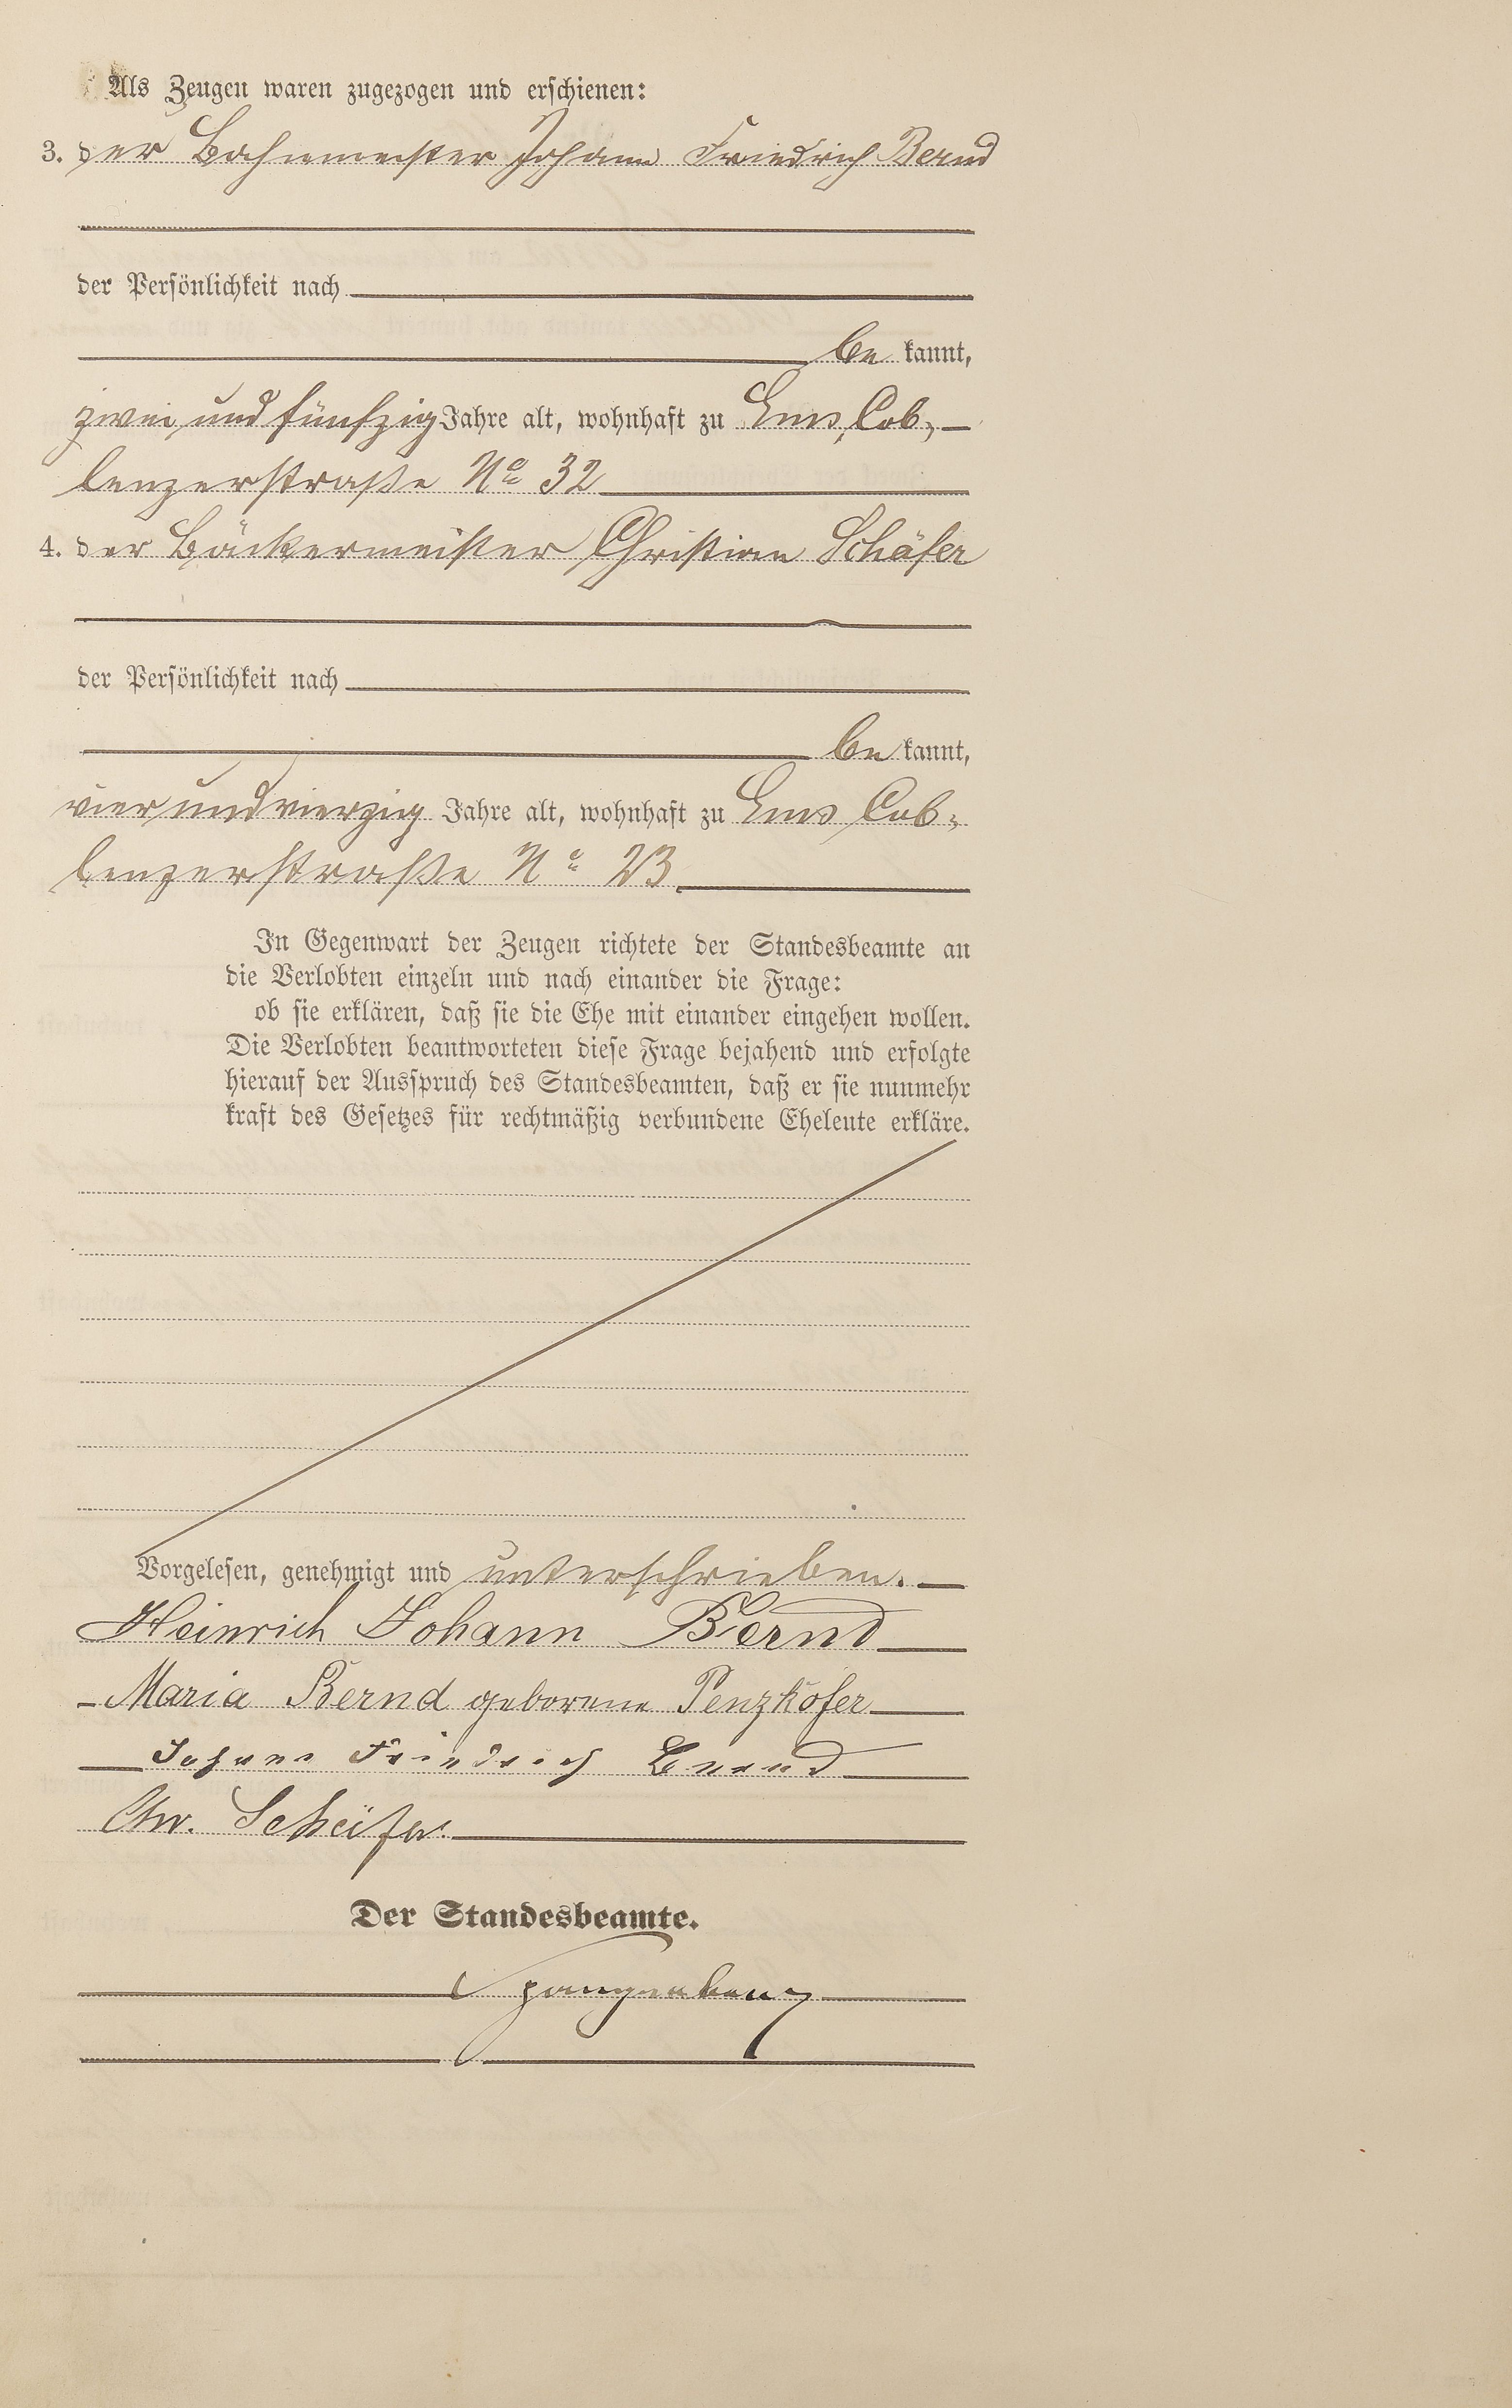 Als Zeugen waren zugezogen und erschienen:
3. der Bahnmeister Johann Friedrich Bernd
der Persönlichkeit nach
be kannt,
zwei und fünfzig Jahre alt, wohnhaft zu Ems, Cob-
lenzerstraße No 32
4. der Bäckermeister Christian Schäfer
der Persönlichkeit nach
be kannt,
vier und vierzig Jahre alt, wohnhaft zu Ems Cob-
lenzerstraße No 23
In Gegenwart der Zeugen richtete der Standesbeamte an
die Verlobten einzeln und nach einander die Frage:
ob sie erklären, daß sie die Ehe mit einander eingehen wollen.
Die Verlobten beantworteten diese Frage bejahend und erfolgte
hierauf der Ausspruch des Standesbeamten, daß er sie nunmehr
kraft des Gesetzes für rechtmäßig verbundene Eheleute erkläre.
Vorgelesen, genehmigt und unterschrieben.
Heinrich Johann Bernd
Maria Bernd geborene Penzkofer
Johann Friedrich Bernd
Chr. Schäfer.
Der Standesbeamte.
Spangenberg